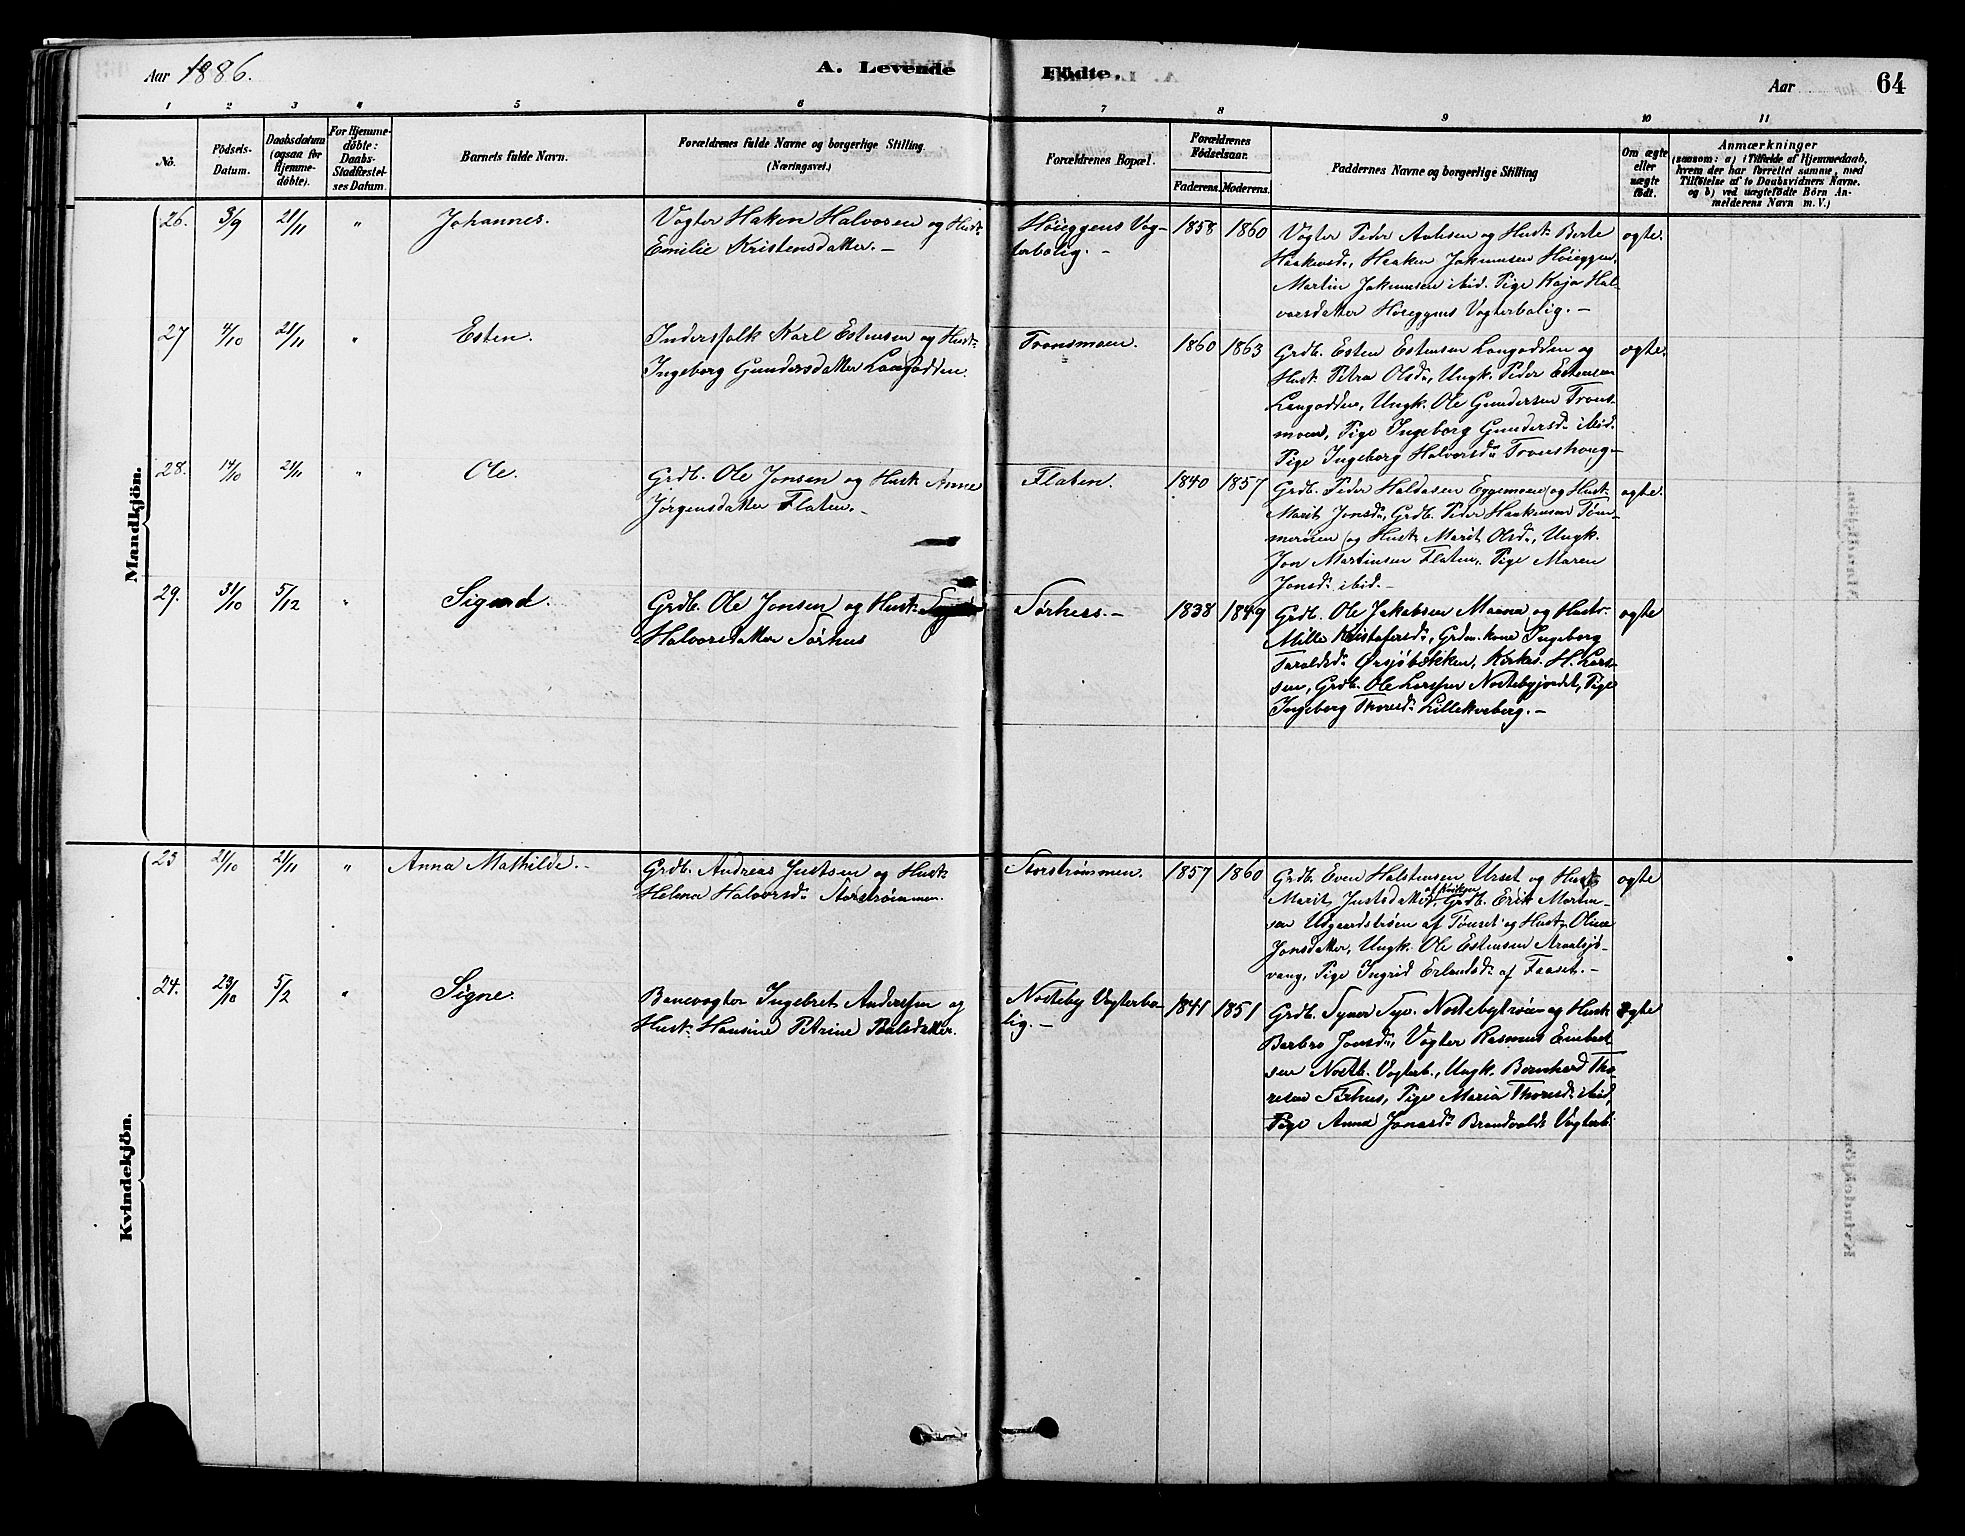 Aar 1886.
A. Levende
Födte.
Aar
64
1 2 3 4 5 6 7 8 9 10 11
No.
Födsels-
Datum.
Daabsdatum
(ogsaa for
Hjemme-
døbte).
For Hjemme-
døbte:
Daabs-
Stadfæstel-
ses Datum.
Barnets fulde Navn.
Forældrenes fulde Navne og borgerlige Stilling
(Næringsvei.)
Forældrenes Bopæl.
Forældrenes
Födselsaar.
Faderens. Moderens.
Faddernes Navne og borgerlige Stilling
Om ægte
eller
uægte
födt.
Anmærkninger
(saasom: a) i Tilfælde af Hjemmedaab,
hvem der har forrettet samme, med
Tilföielse af to Daabsvidners Navne.
og b) ved uægtefödte Börn An-
melderens Navn m. V.)
Mandkjön.
26. 3/9 21/11 " Johannes.
Vogter Hakon Halvorsen og Hust.
Emilie Kristensdatter. -
Höieggens Vog-
terbolig. -
1858 1860
Vogter Peder Aasen og Hust. Berte
Haakensd., Haaken Jakumsen Höieggen,
Martin Jakumsen ibid. Pige Kaja Hal-
vorsdatter Höieggens Vogterbolig. -
ægte.
27 4/10 21/11 " Esten.
Inderstfolk Karl Estensen og Hust.
Ingeborg Gundersdatter Langodden.
Tronsmoen.
1860 1863
Grdb. Esten Estensen Langodden og
Hust. Petra Olsd., Ungk. Peder Estensen
Langodden, Ungk. Ole Gundersen Trons-
moen, Pige Ingeborg Gundersd. ibid.
Pige Ingeborg Halvorsd. Tronshoug -
ægte.
28. 14/10 21/11 " Ole.
Grdb. Ole Jonsen og Hust. Anne
Jørgensdatter Flaten. -
Flaten.
1840 1857
Grdb. Peder Haldosen Eggemoen og Hust.
Marit Jonsd., Grdb. Peder Haakensen Töm-
merøien og Hust. Marit Olsd., Ungk.
Jon Martinsen Flaten, Pige Maren
Jonsd. ibid. -
ægte.
29. 31/10 5/12 " Sigurd.
Grdb. Ole Jonsen og Hust.
Halvorsdatter Sørhus
Sørhus. -
1838 1849
Grdb. Ole Jakobsen Maana og Hustr.
Mille Kristofersd., Grdm. kone Ingeborg
Taraldsd. Ørsjøbækken, Kirkes. H. Lars-
sen, Grdb. Ole Larssen Nostebyjordet, Pige
Ingeborg Thoresd. Lillekveberg. -
ægte
Kvindekjön.
23 21/10 21/11 " Anna Mathilde. -
Grdb. Andreas Justsen og Hust.
Helena Halvorsd. Storstrømmen.
Storstrømmen.
1857 1860
Grdb. Even Halstensen Urset og Hust.
Marit Justsdatter, Grdb. Erik Morten-
sen Udgaardstrøen af Tönset og Hust. Oline
Jonsdatter, Ungk. Ole Estensen
vang, Pige Ingrid Erlandsd. af Faaset. -
ægte
24. 23/10 5/12 " Signe.
Banevogter Ingebret Anderssen og
Hust. Hansine Petrine Paulsdatter.
Nosteby Vogterbo-
lig. -
1841 1851
Grdb. Syver Syv. Nostebytrøen og Hust.
Barbro Jonsd., Vogter Rasmus Embret
sen Nosteb. Vogterb., Ungk. Bernhard Tho-
resen Sørhus, Pige Maria Thoresd. ibid,
Pige Anna Jonasd. Brandvolds Vogterb.
ægte